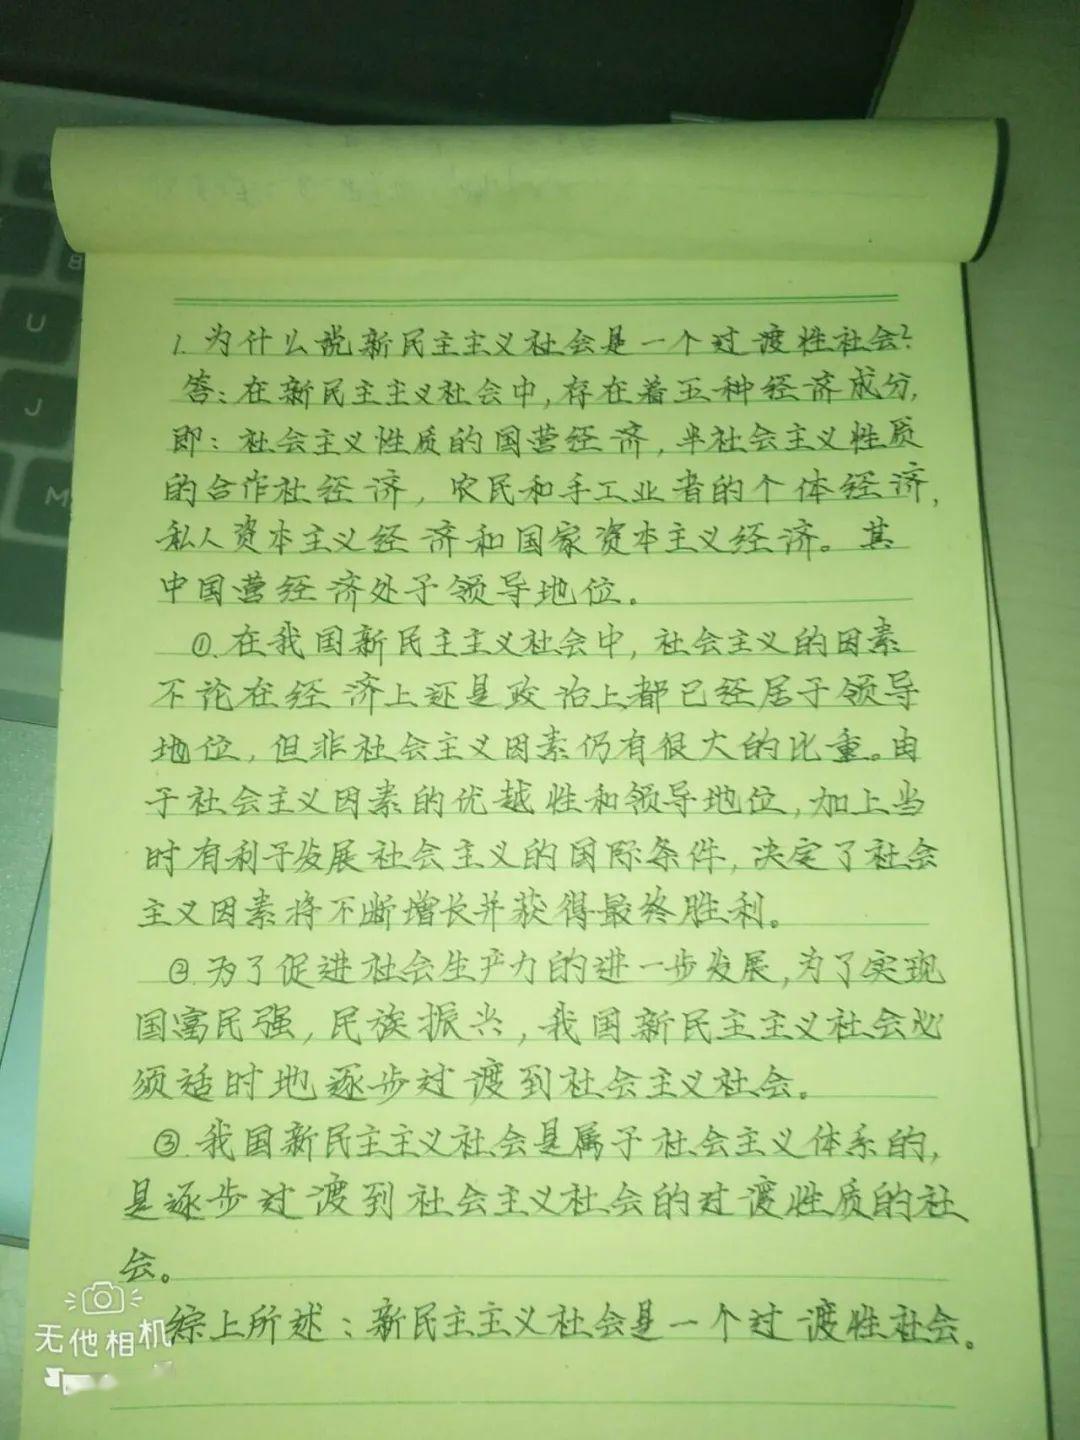 1. 为什么说新民主主义社会是一个过渡性社会?
答:在新民主主义社会中,存在着五种经济成分,
即:社会主义性质的国营经济,半社会主义性质
的合作社经济,农民和手工业者的个体经济,
私人资本主义经济和国家资本主义经济。其
中国营经济处于领导地位。
①.在我国新民主主义社会中,社会主义的因素
不论在经济上还是政治上都已经居于领导
地位,但非社会主义因素仍有很大的比重。由
于社会主义因素的优越性和领导地位,加上当
时有利于发展社会主义的国际条件,决定了社会
主义因素将不断增长并获得最终胜利。
②.为了促进社会生产力的进一步发展,为了实现
国富民强,民族振兴,我国新民主主义社会必
须适时地逐步过渡到社会主义社会。
③.我国新民主主义社会是属于社会主义体系的,
是逐步过渡到社会主义社会的过渡性质的社
会。
综上所述:新民主主义社会是一个过渡性社会。
无他相机
U
J
M
8